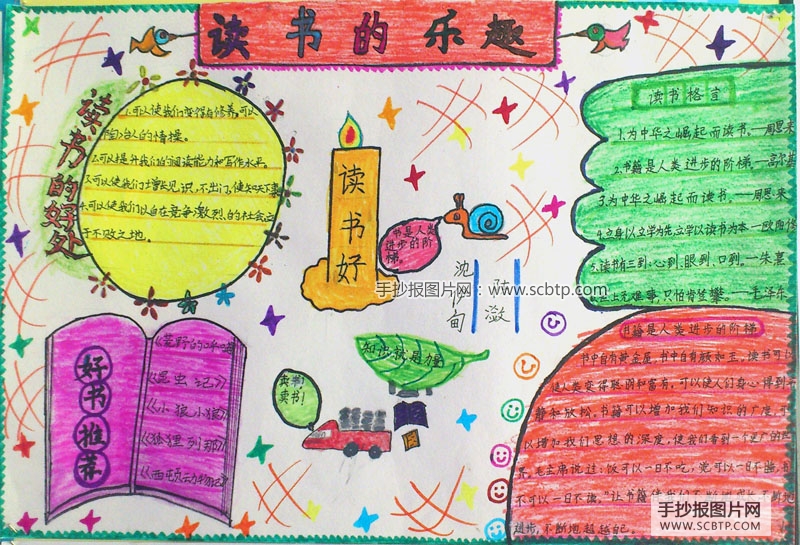 读书的乐趣
读书的好处
1.可以使我们变得有修养,可以
陶冶人的情操。
2.可以提升我们的阅读能力和写作水平
3.可以使我们增长见识,不出门,便知天下事
4.可以使我们以自在竞争激烈的社会立
于不败之地。
读书好
书是人类
进步的阶
梯。
读书格言
1.为中华之崛起而读书。—周恩来
2.书籍是人类进步的阶梯。—高尔基
3.为中华之崛起而读书。—周恩来
4.立身以立学为先,立学以读书为本—欧阳修
5.读书有三到:心到、眼到、口到。—朱熹
世上无难事,只怕肯登攀。—毛泽东
手抄报图片网:www.scbtp.com
陈激
知识就是力量
卖书!
卖书!
好书推荐
《荒野的呼唤
《昆虫记》
《小狼小狼》
《狐狸列那》
《西顿动物记》
书籍是人类进步的阶梯
书中自有黄金屋,书中自有颜如玉。读书可以
使人类变得聪明和富有,可以使人们身心得到平
静和放松。书籍可以增加我们知识的广度,可
以增加我们思想的深度,使我们看到一个更广的世
界。毛主席说过:饭可以一日不吃,觉可以一日不睡,书
不可以一日不读。"让书籍使我们不断
进步,不断地超越自己。
手抄报图片网
WWW.SCBTP.COM